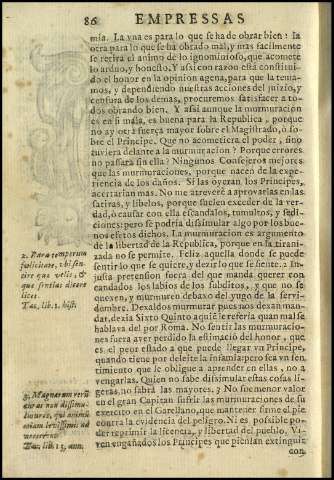 86 EMPRESSAS
mia. La vna es para lo que se ha de obrar bien: la
otra para lo que se ha obrado mal, y mas facilmente
se retira el animo de lo ignominioso, que acomete
lo arduo, y honesto, Y assi con razon està constitui-
do el honor en la opinion agena, para que la tema-
mos, y dependiendo nuestras acciones del juizio, y
censura de los demas, procuremos satisfacer a to-
dos obrando bien. Y assi aunque la murmuracion
es en si mala, es buena para la Republica, porque
no ay otra fuerça mayor sobre el Magistrado, ò so-
bre el Principe. Que no acometiera el poder, sino
tuviera delante a la murmuracion? Porque errores
no passara sin ella? Ningunos Consejeros mejores
que las murmuraciones, porque nacen de la expe-
riencia de los daños. Si las oyeran los Principes,
acertarian mas. No me atreverè a aprovarlas en las
satiras, y libelos, porque suelen exceder de la ver-
dad, ò causar con ella escandalos, tumultos, y sedi-
ciones: pero se podria dissimular algo por los bue-
nos efetos dichos. La murmuracion es argumento
de la libertad de la Republica, porque en la tirani-
zada no se permite. Feliz aquella donde se puede
sentir lo que se quiere, y dezir lo que se siente. 2 In-
justa pretension fuera del que manda querer con
candados los labios de los subditos, y que no se
quexen, y murmuren debaxo del yugo de la servi-
dumbre. Dexaldos murmurar pues nos dexan man-
dar, dezia Sixto Quinto a quien le referia quan mal se
hablava del por Roma. No sentir las murmuracio-
nes fuera aver perdido la estimaciõ del honor, que
es el peor estado a que puede llegar vn Principe,
quando tiene por deleite la infamia; pero sea vn sen-
timiento que le obligue a aprender en ellas, no a
vengarlas. Quien no sabe dissimular estas cosas lige-
ras, no sabrà las mayores. 3 No fue menor valor
en el gran Capitan sufrir las murmuraciones de su
exercito en el Garellano, que mantener firme el pie
contra la evidencia del peligro. Ni es possible po-
der reprimir la licencia, y libertad del pueblo. Vi-
ven engañados los Principes que piensan extinguir
con
2. Rara temporum
felicitate, vbi sen-
tire que velis, &
que sentias dicere
licet.
Tac. lib. 1. hist.
3. Magnarum reru
curas non dissimu-
laturos, qui animũ
etiam levissimis ad
verterent
Tac. lib. 13. ann.